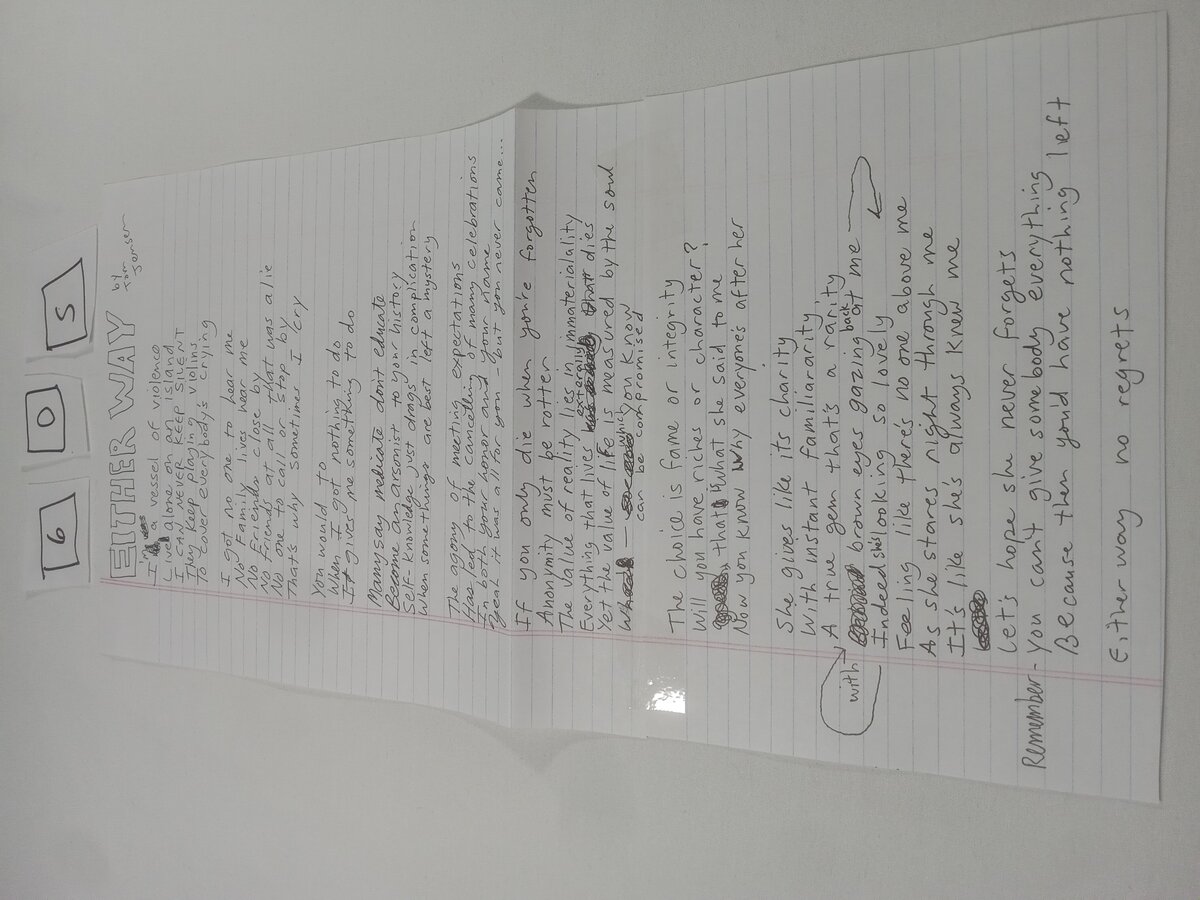 6 0 5
EITHER WAY
by
Tom
Jomser
I'm a vessel of violence
Live alone on an island
I CANNEVER KEEP SILENT
They keep playing violins
To cover everybody's crying
I got no one to hear me
No Family lives near me
No Friends close by
No Friends at all that was a lie
No one to call or stop by
That's why sometimes I cry
You would to
When I got nothing to do
It gives me something to do
Many say medicate don't educate
Become an arsonist to your history
Self-knowledge just drags in complication
When some things are best left a mystery
The agony of meeting expectations
Has led to the cancelling of many celebrations
In both your honor and your name
yeah it was all for you - but you never came...
If you only die when you're forgotten
Anonymity must be rotten
The value of reality lies in immateriality
Everything that lives externally dies
Yet the value of life is measured by the soul
— which you know
can be compromised
The choice is fame or integrity
Will you have riches or character?
that's what she said to me
Now you know why everyone's after her
She gives like its charity
With instant familiararity
A true gem that's a rarity
with brown eyes gazing back at me
Indeed she's looking so lovely
Feeling like there's no one above me
As she stares right through me
It's like she's always knew me
Let's hope she never forgets
Remember - You can't give somebody everything
Because then you'd have nothing left
Either way no regrets